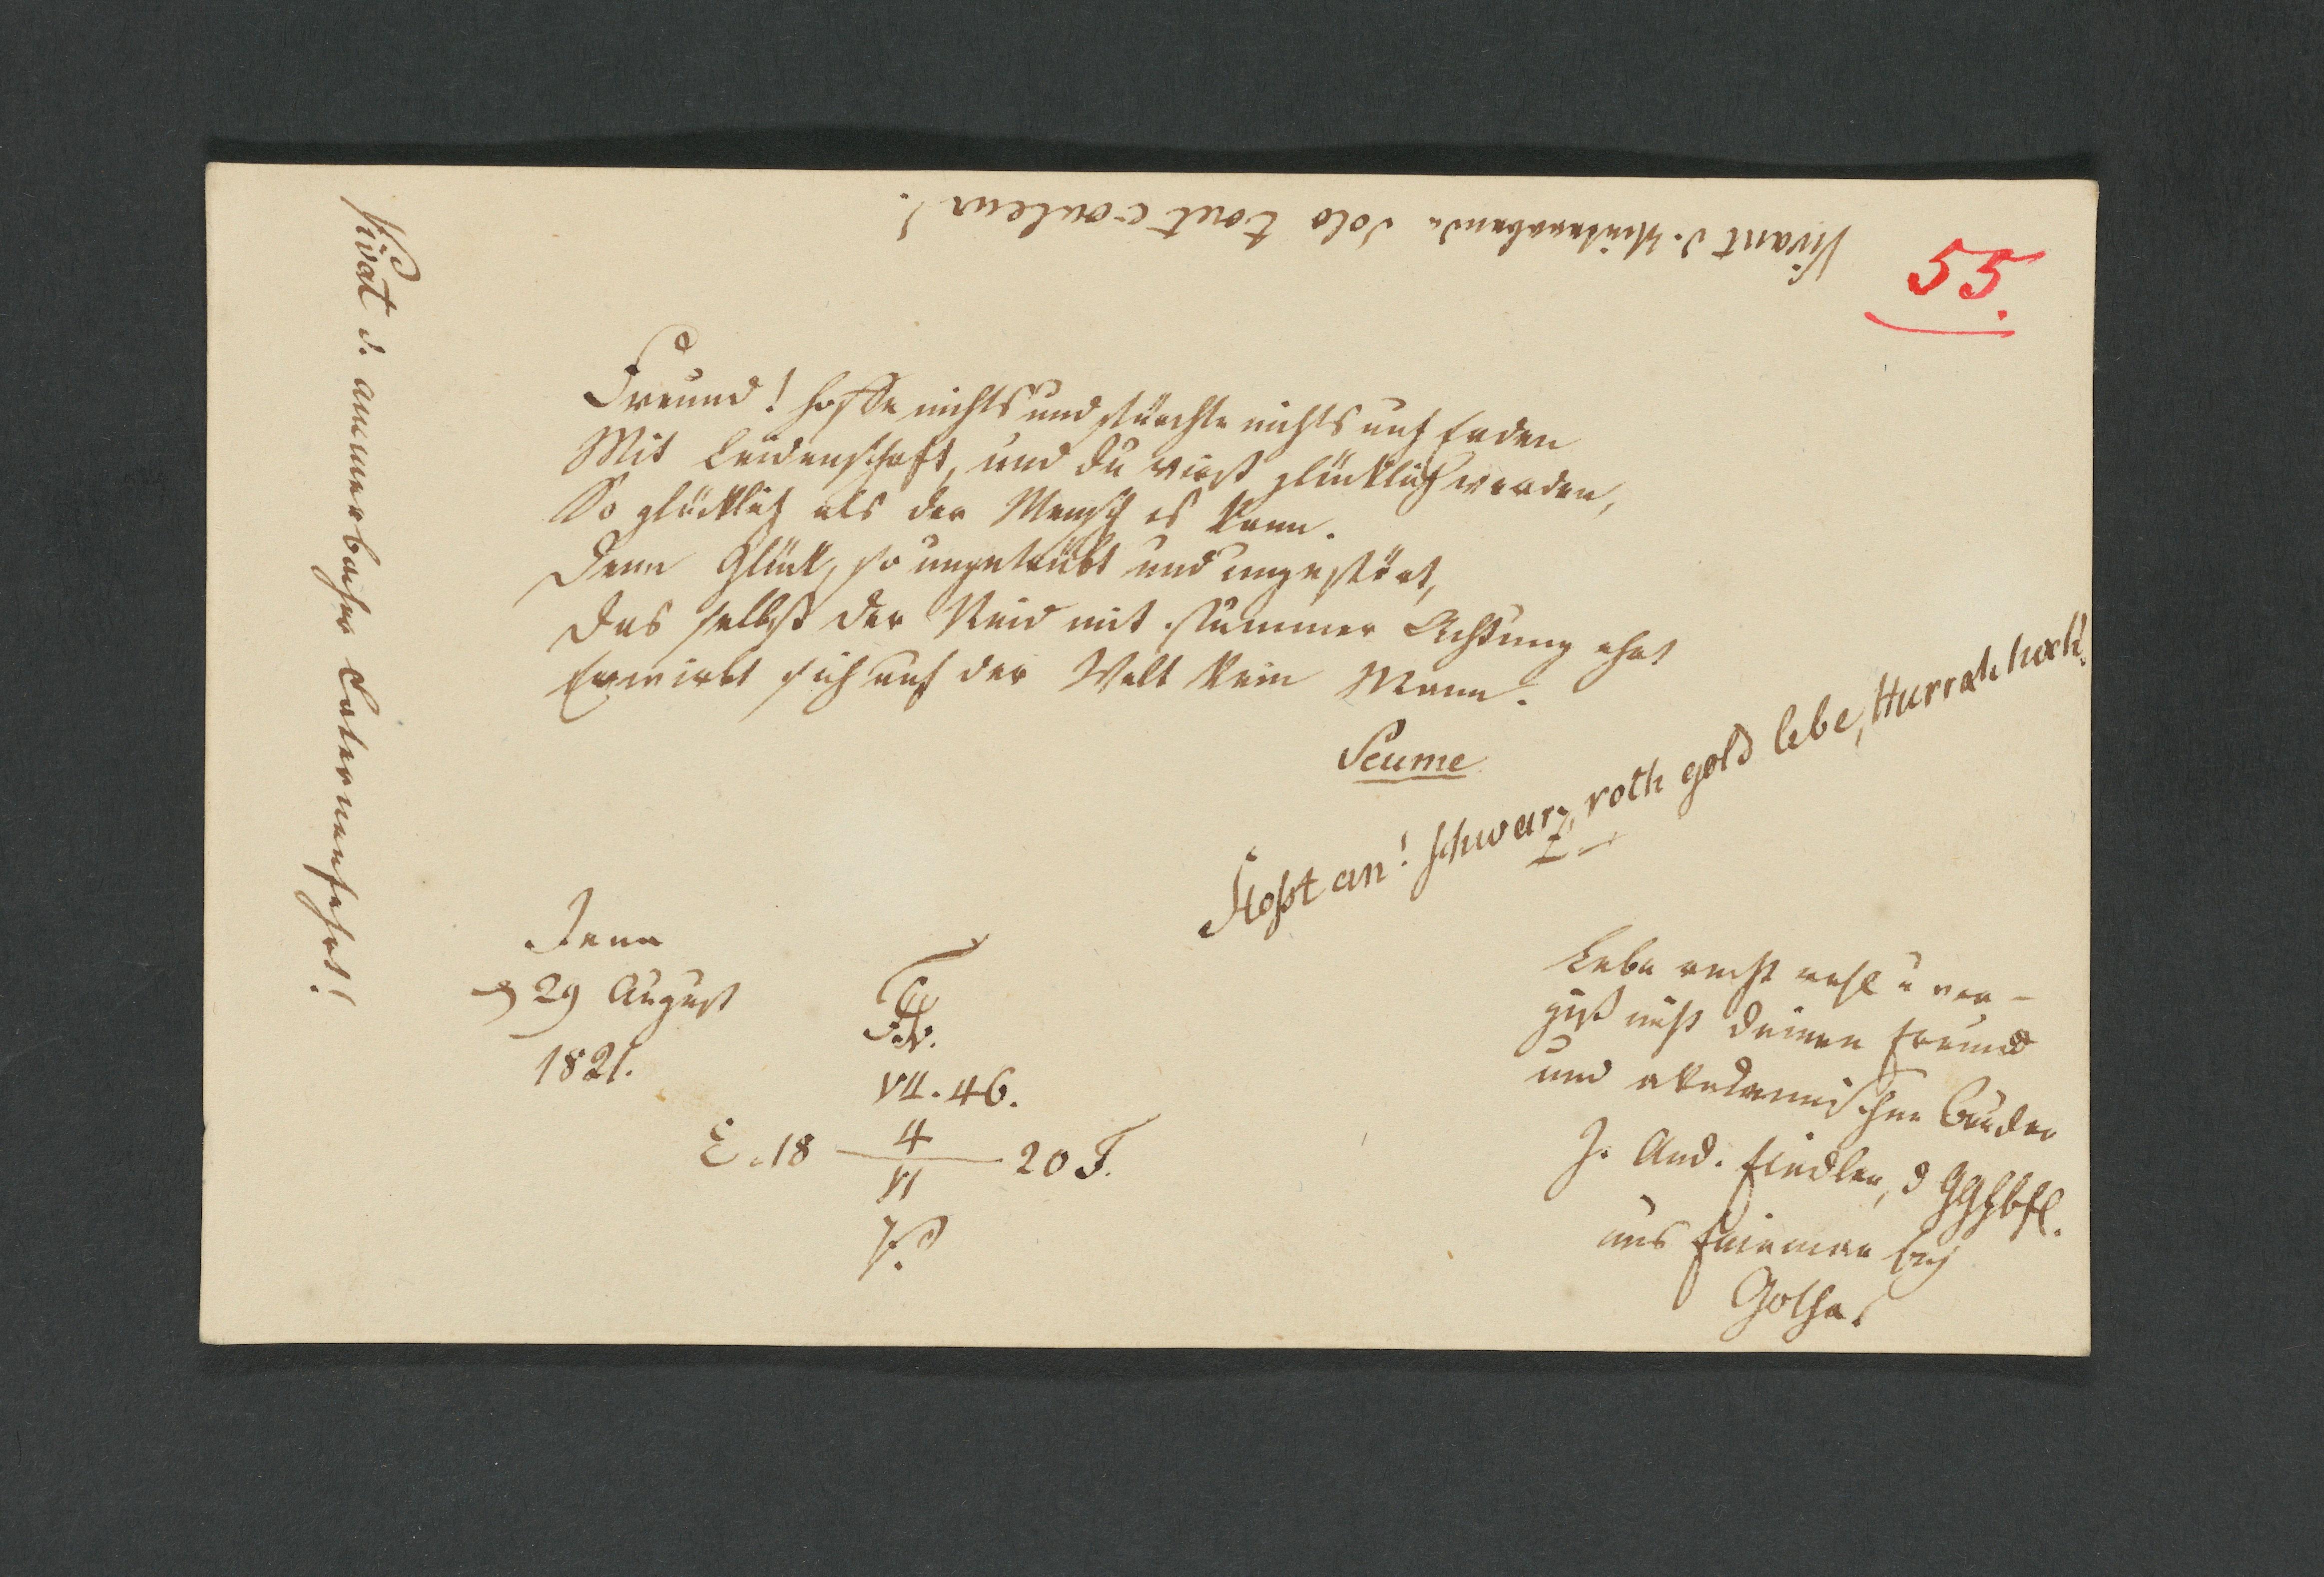 55.
Vivant d. Winterabend. Solo tout couleur!
Vivat d. ammerbacher Laternenfahrt!
Freund! hoffe nichts und fürchte nichts auf Erden
Mit Leidenschaft, und du wirst glücklich werden,
So glücklich als der Mensch es kann.
Denn Glück, so ungetrübt und ungestört,
Das selbst der Neid mit stummer Achtung ehrt
Erwirbt sich auf der Welt kein Mann.
Seume
Stoßt an! schwarz, roth gold lebe, Hurrah hoch!
Jena
d 29 August
1821.
VII. 46.
E. 18 4 20 F.
VI
Lebe recht wohl u ver-
giß nicht deinen Freund
und akademischen Bruder
J. And. Fiedler, d
aus Friemar bey
Gotha.